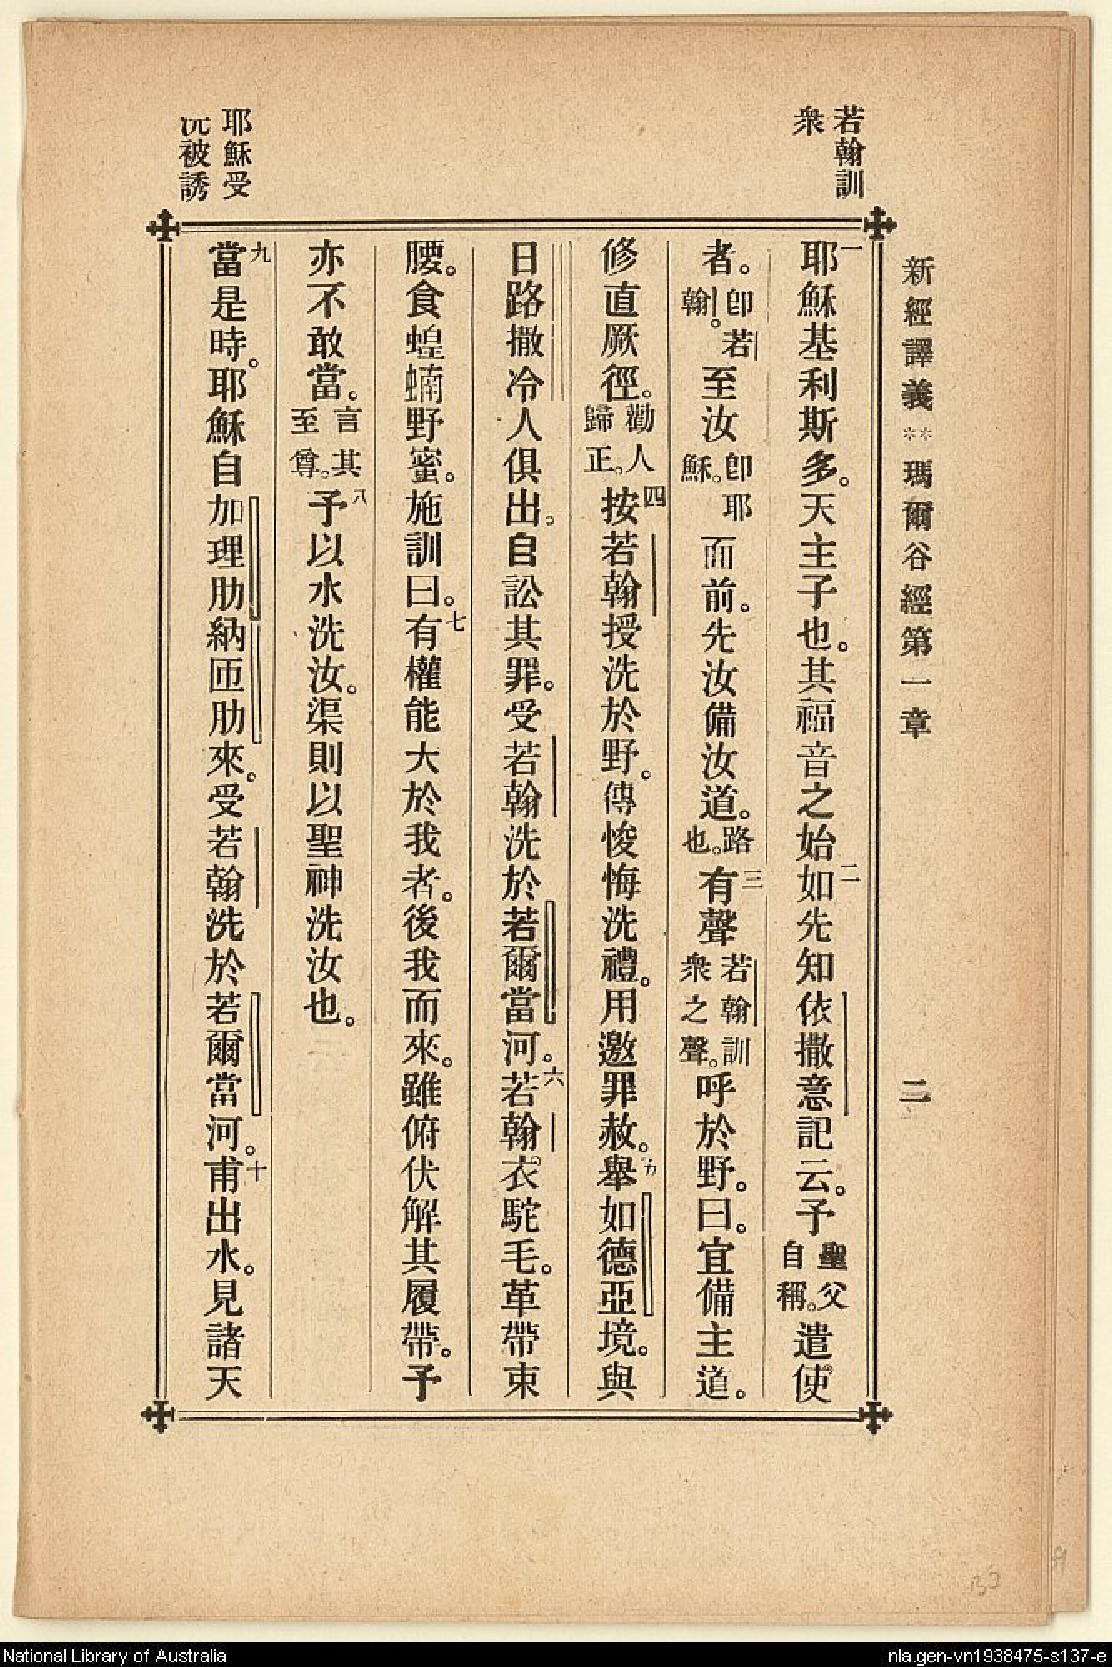 新經譯義 瑪爾谷經第一章 二
若翰訓
衆
一耶穌基利斯多。天主子也。其福音之始二如先知依撒意記云。予聖父自稱。遣使
者。卽若翰。至汝卽耶穌。面前。先汝備汝道。路也。三有聲若翰訓衆之聲。呼於野。曰。宜備主道。
修直厥徑。勸人歸正。四按若翰授洗於野。傳悛悔洗禮。用邀罪赦。五舉如德亞境。與
日路撒冷人俱出。自訟其罪。受若翰洗於若爾當河。六若翰衣駝毛。革帶束
腰。食蝗蝻野蜜。施訓曰。七有權能大於我者。後我而來。雖俯伏解其履帶。予
亦不敢當。言其至尊。八予以水洗汝。渠則以聖神洗汝也。
九當是時。耶穌自加理肋納匝肋來。受若翰洗於若爾當河。十甫出水。見諸天
耶穌受
洗被誘
National Library of Australia
nla.gen-vn1938475-s137-e